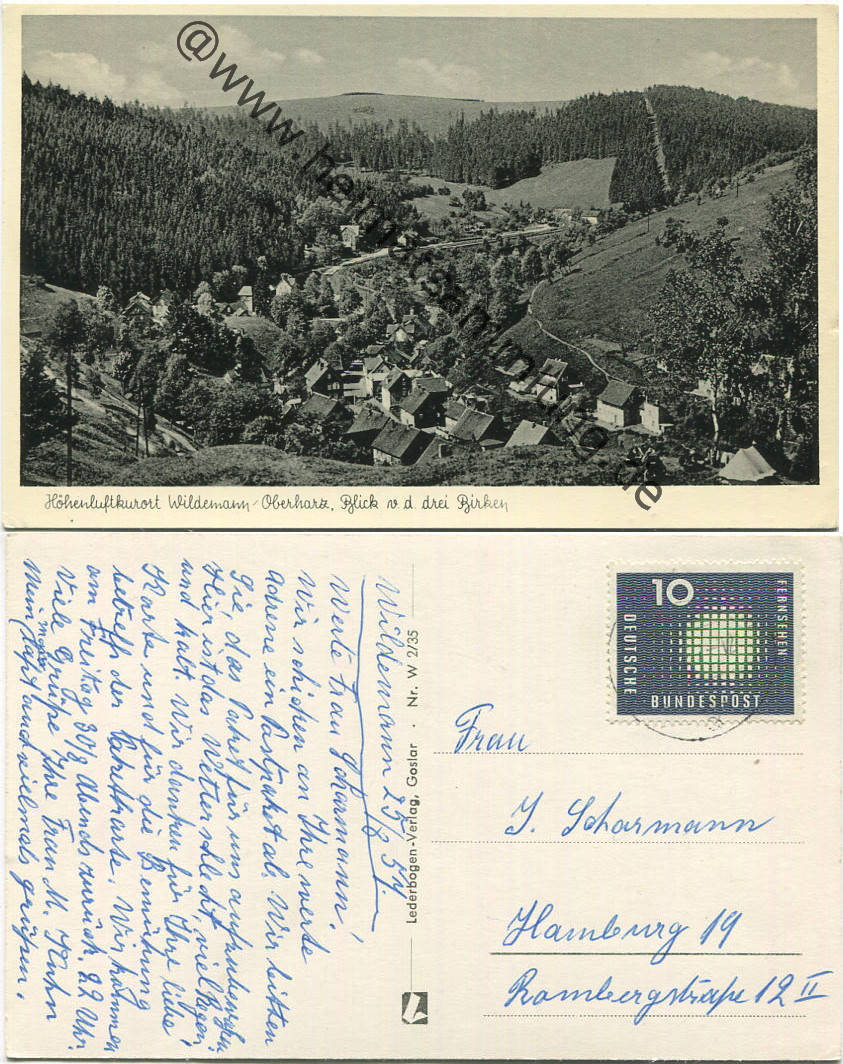 @www.heimatsammlung.de
Höhenluftkurort Wildemann-Oberharz, Blick v. d. drei Birken
Wildemann 25/8 57.
Werte Frau Scharmann!
Wir schicken an Ihre werte
Adresse ein Postpaket ab. Wir bitten
Sie, das Paket für uns aufzubewahren.
Hier ist das Wetter schlecht, viel Regen
und kalt. Wir danken für Ihre liebe
Karte und für die Bemühung
betreff der Paketkarte. Wir kommen
am Freitag 30/8 Abends zurück. 22 Uhr.
Viele Grüße Ihre Frau M. Hahn
Mein Mann läßt auch vielmals grüßen.
Lederbogen-Verlag, Goslar · Nr. W 2/35
10
FERNSEHEN
DEUTSCHE
BUNDESPOST
Frau
J. Scharmann
Hamburg 19
Rombergstraße 12 II